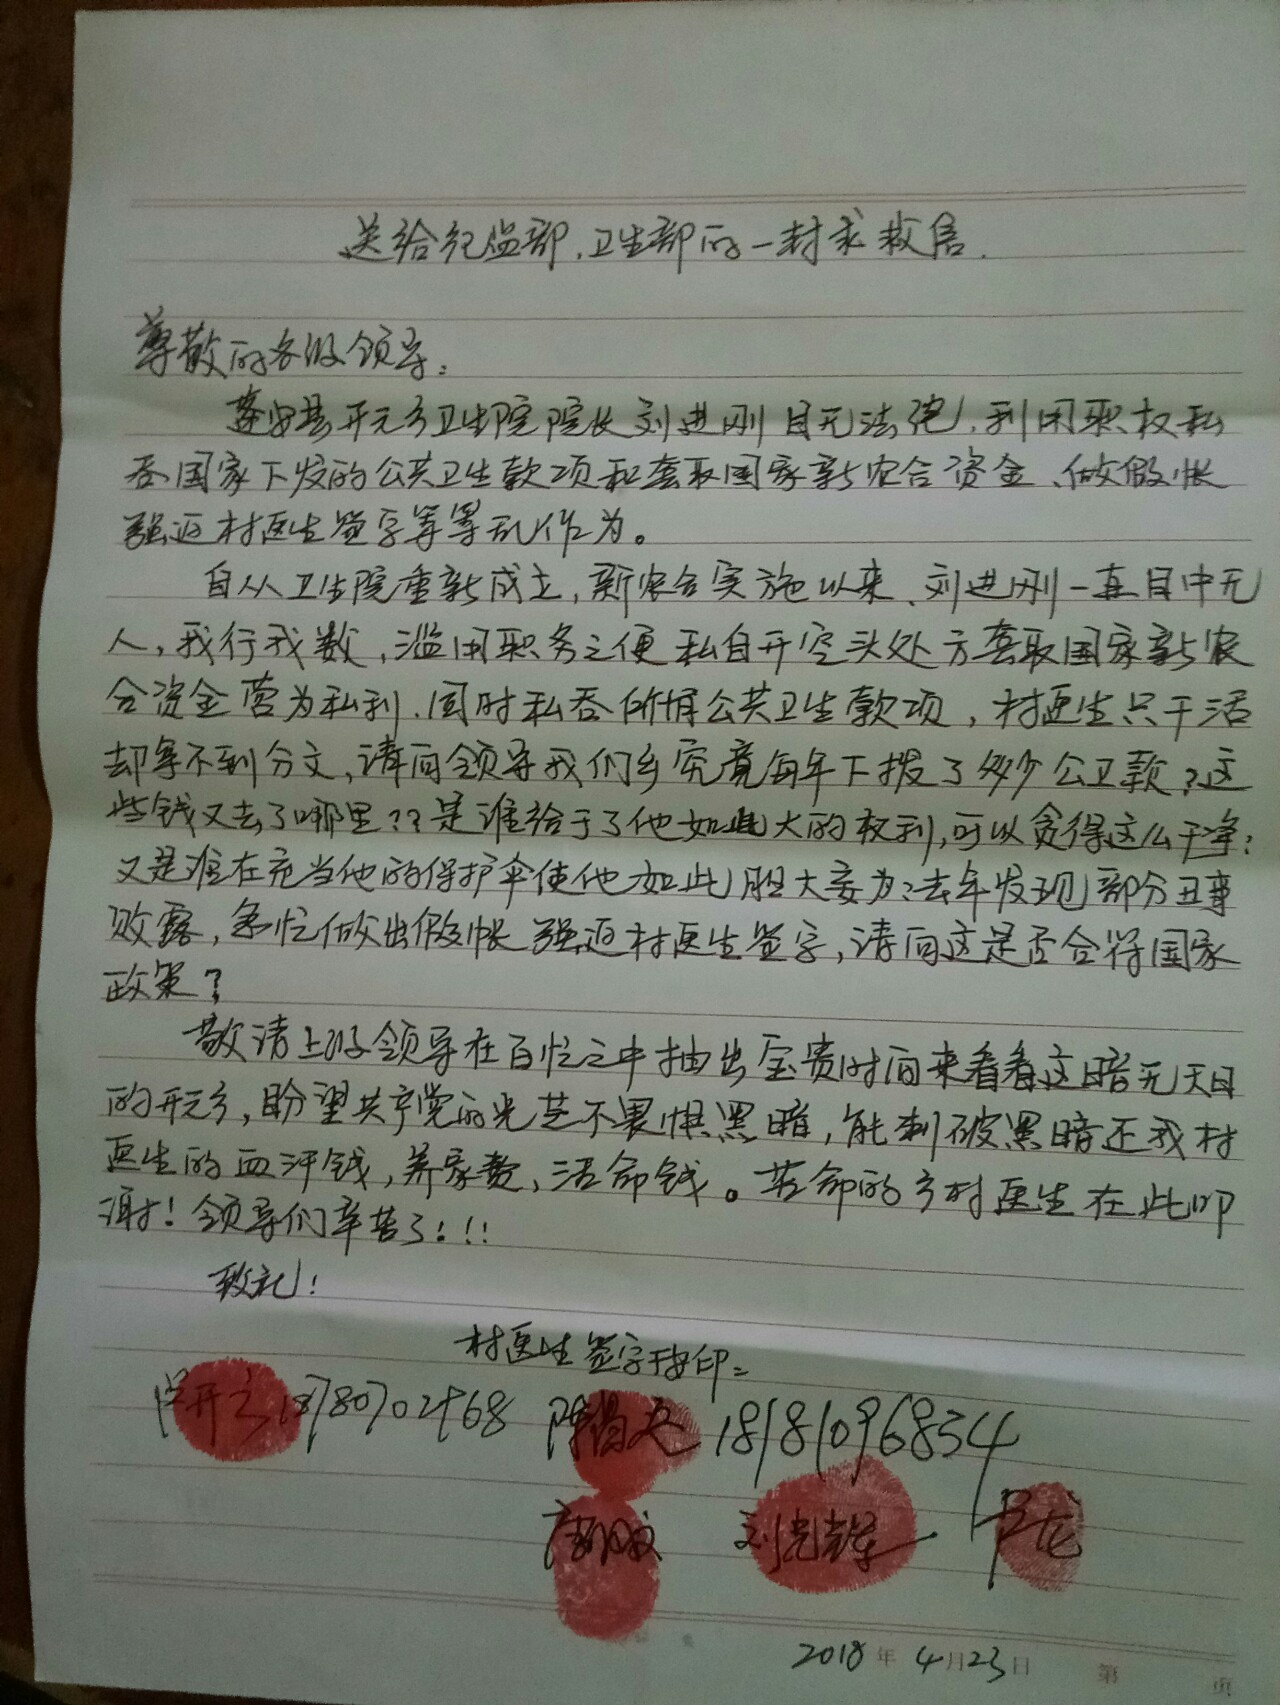 送给纪监部、卫生部的一封求救信.
尊敬的各级领导:
蓬安县开元乡卫生院院长刘进刚目无法纪，利用职权私
吞国家下发的公共卫生款项和套取国家新农合资金、做假帐
强迫村医生签字等等乱作为。
自从卫生院重新成立，新农合实施以来、刘进刚一直目中无
人，我行我数，滥用职务之便私自开空头处方套取国家新农
合资金营为私利.同时私吞所有公共卫生款项，村医生只干活
却拿不到分文、请问领导我们乡究竟每年下拨了多少公卫款？这
些钱又去了哪里??是谁给于了他如此大的权利，可以贪得这么干净？
又是谁在充当他的保护伞使他如此胆大妄为？去年发现部分丑事
败露，急忙做出假帐强迫村医生签字，请问这是否合符国家
政策？
敬请上级领导在百忙之中抽出宝贵时间来看看这暗无天日
的开元乡，盼望共产党的光芒不畏惧黑暗，能刺破黑暗还我村
医生的血汗钱，养家费，活命钱。苦命的乡村医生在此叩
谢！领导们辛苦了！!!
致礼！
村医生签字按印：
开 18780702968 陈昌 18181096834
唐 刘光辉 龙
2018年4月23日 第 页